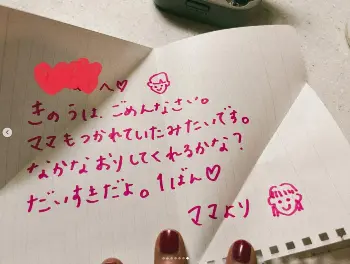 へ♡
きのうは、ごめんなさい。
ママもつかれていたみたいです。
なかなおりしてくれるかな?
だいすきだよ。1ばん♡
ママより